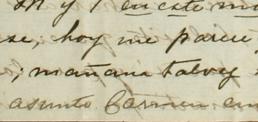 M y P en este mi
se, hoy me parece
; mañana talvez
asunto Carmen em